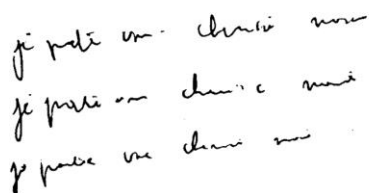 je porte une chemise noire
je porte une chemise noire
je porte une chemise noire